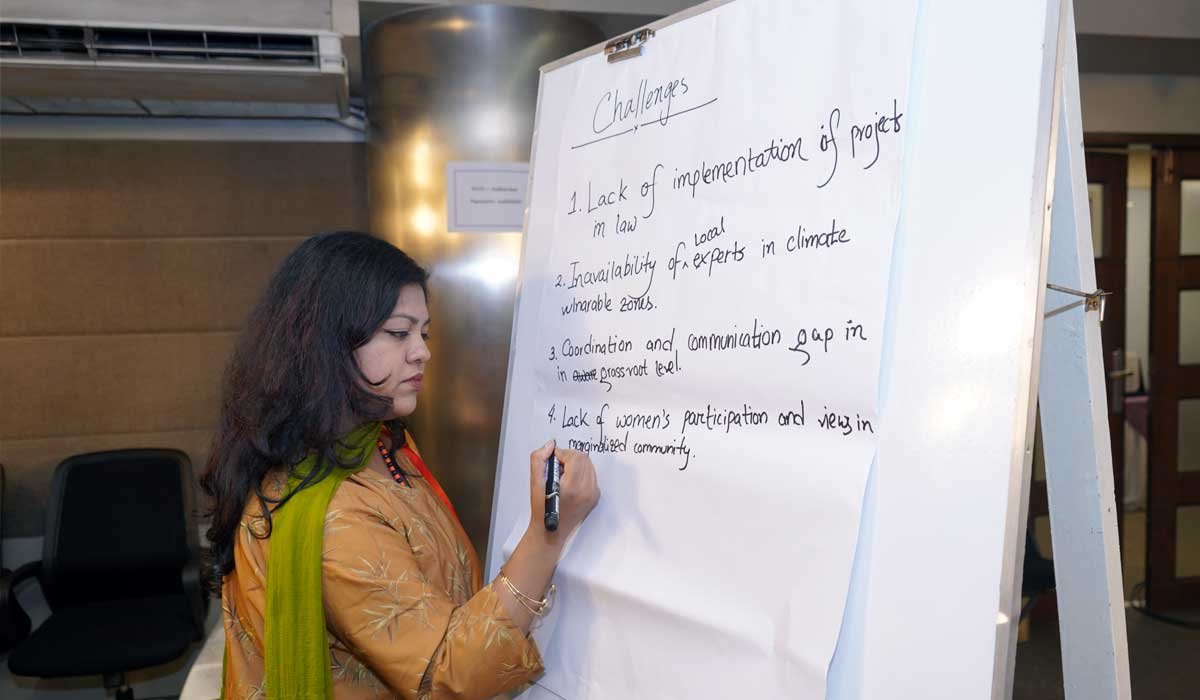 Challenges
1. Lack of implementation of projects
in law
2. Inavailability of ^ Local experts in climate
vulnarable zones.
3. Coordination and communication gap in
in grossroot level.
4. Lack of women's participation and views in
merginalized community.